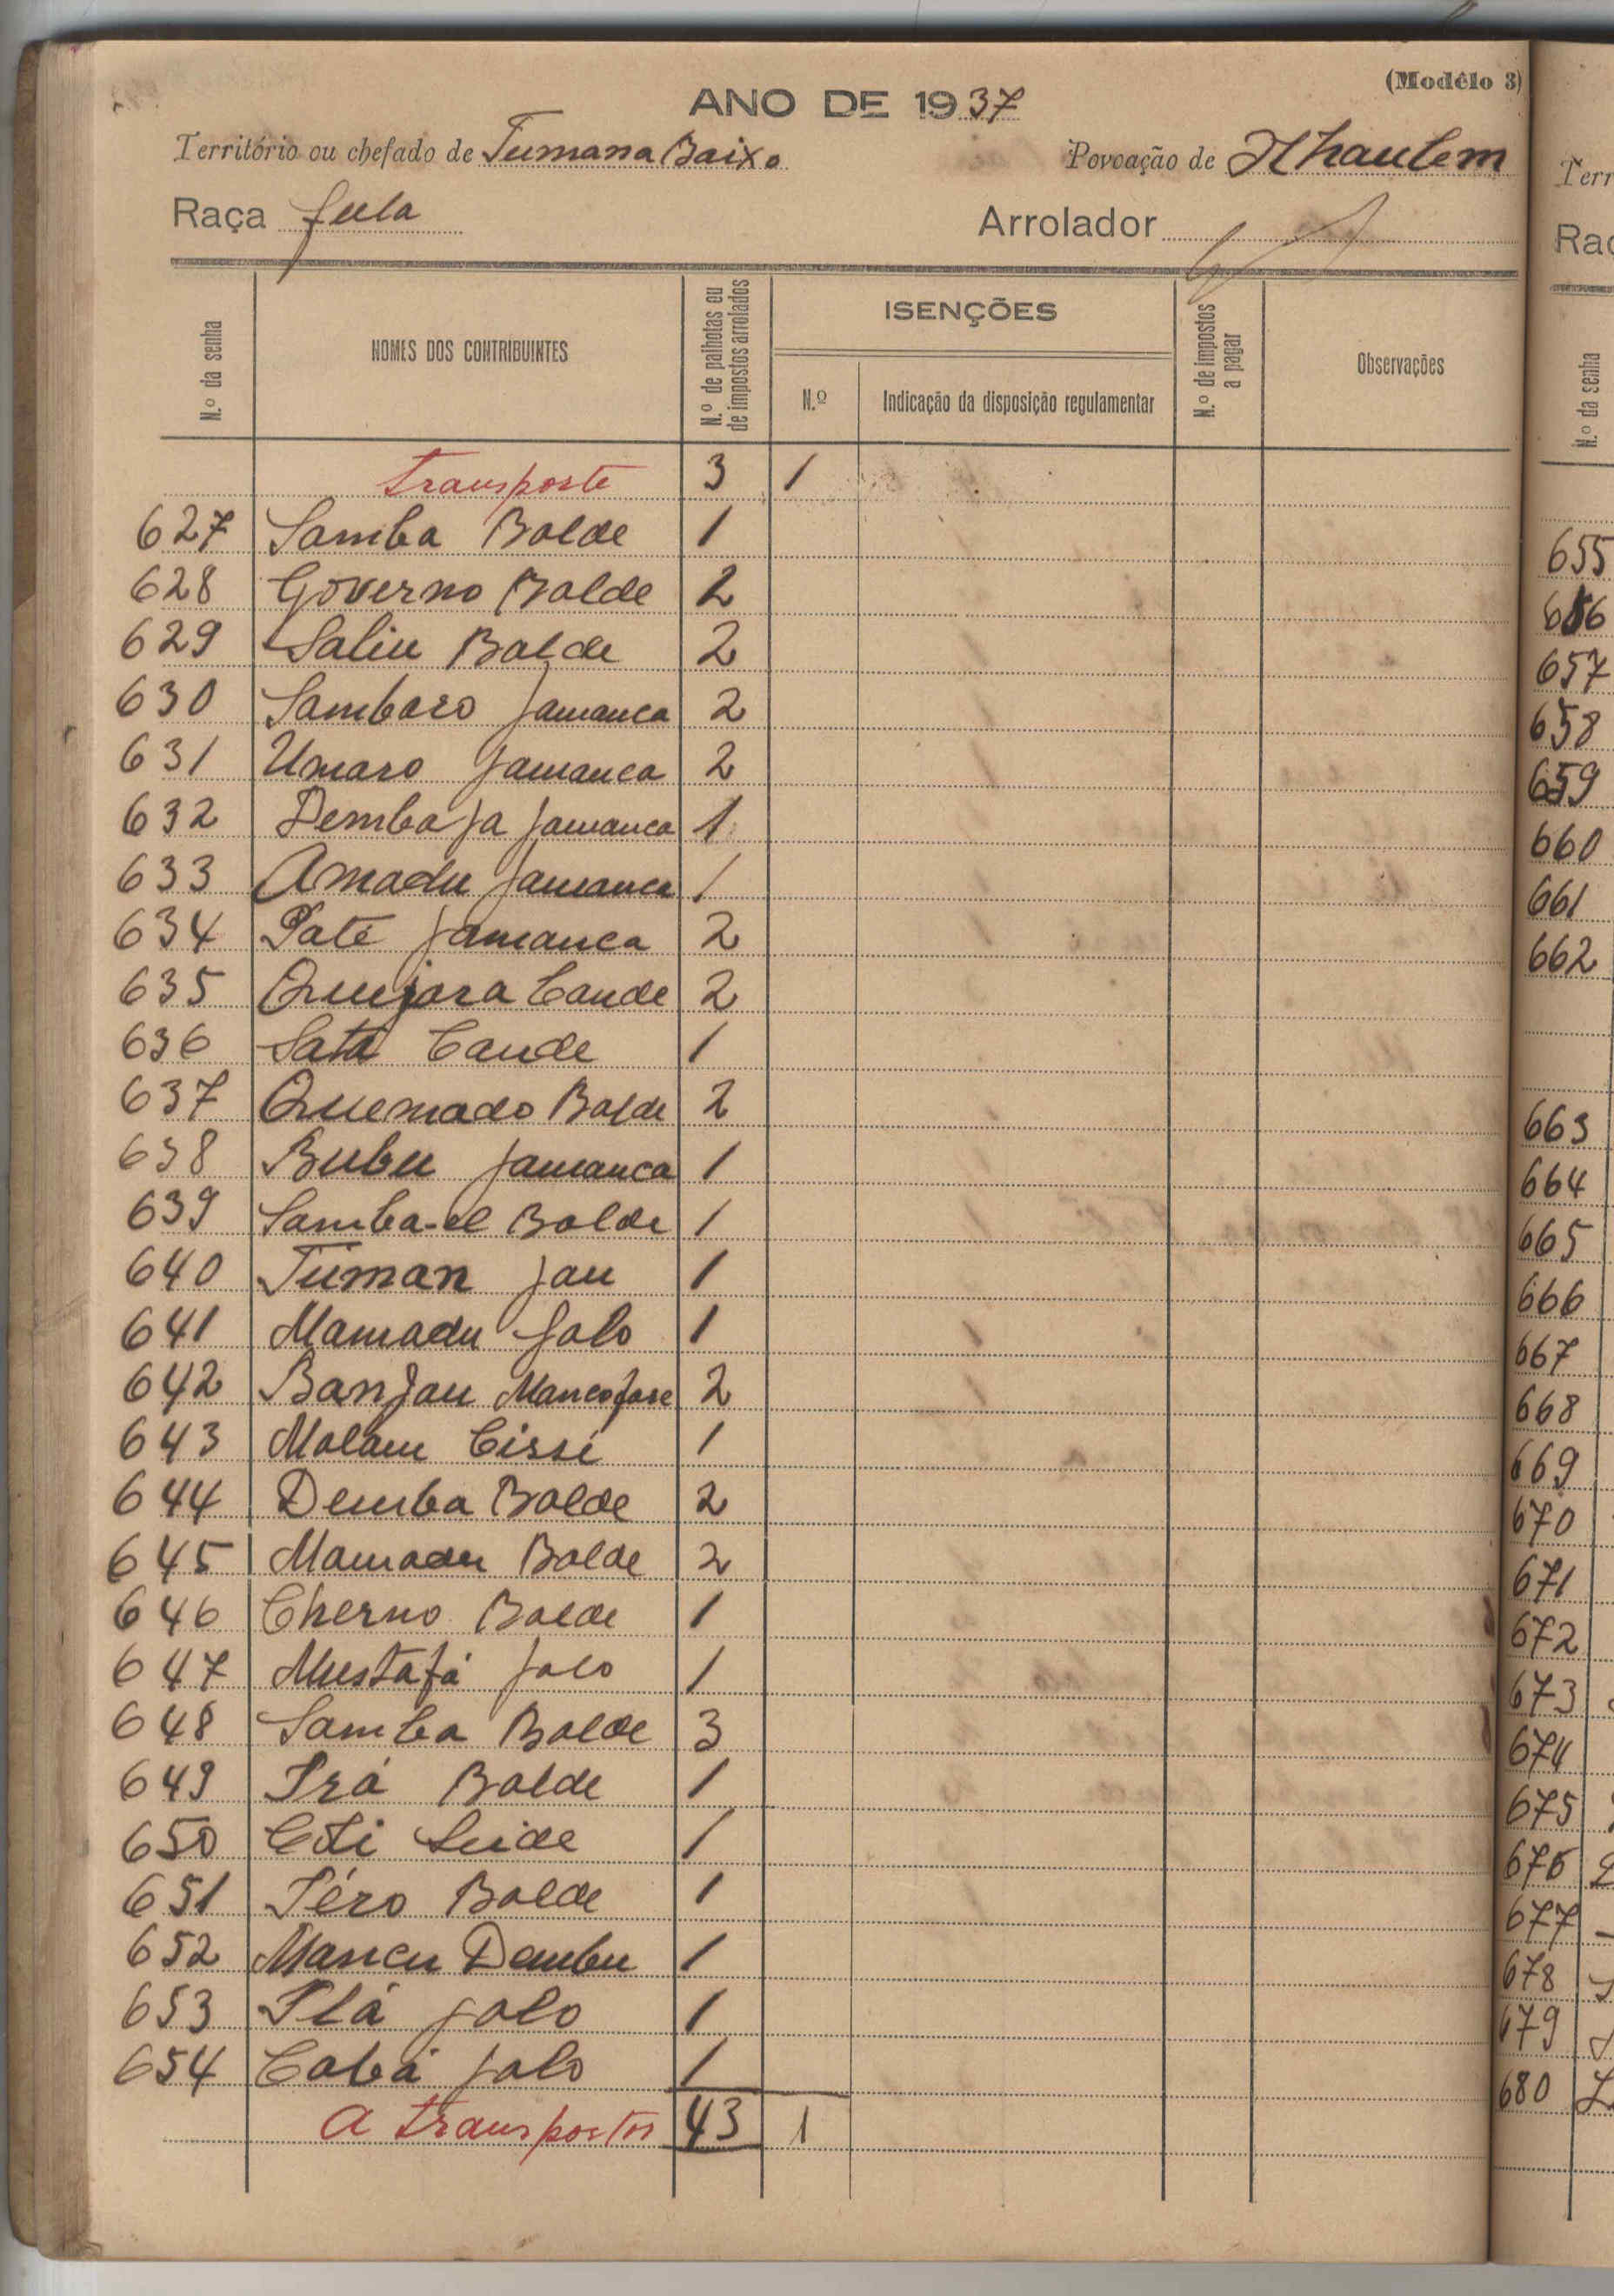 (Modêlo 3)
ANO DE 1937
Território ou chefado de Tumana Baixo Povoação de
Raça fula Arrolador
N.º da senha NOMES DOS CONTRIBUINTES N.º de palhotas ou de impostos arrolados ISENÇÕES N.º Indicação da disposição regulamentar N.º de impostos a pagar Observações
Transporte 3 1
627 Samba Balde 1
628 Governo Balde 2
629 Saliu Balde 2
630 Sambaro Jamanca 2
631 Umaro Jamanca 2
632 Demba Ja Jamanca 1
633 Amadu Jamanca 1
634 Paté Jamanca 2
635 Quejara Cande 2
636 Satá Cande 1
637 Quemado Balde 2
638 Bubu Jamanca 1
639 Samba-el Balde 1
640 Tuman Jau 1
641 Mamadu Jalo 1
642 Banjau 2
643 Malam Cissé 1
644 Demba Balde 2
645 Mamadu Balde 2
646 Cherno Balde 1
647 Mustafá Jalo 1
648 Samba Balde 3
649 Irá Balde 1
650 Seide 1
651 Téro Balde 1
652 Demba 1
653 Jalo 1
654 Cabá Jalo 1
A transportar 43 1
Terr
Raç
N.º da senha
655
656
657
658
659
660
661
662
663
664
665
666
667
668
669
670
671
672
673
674
675
676
677
678
679
680